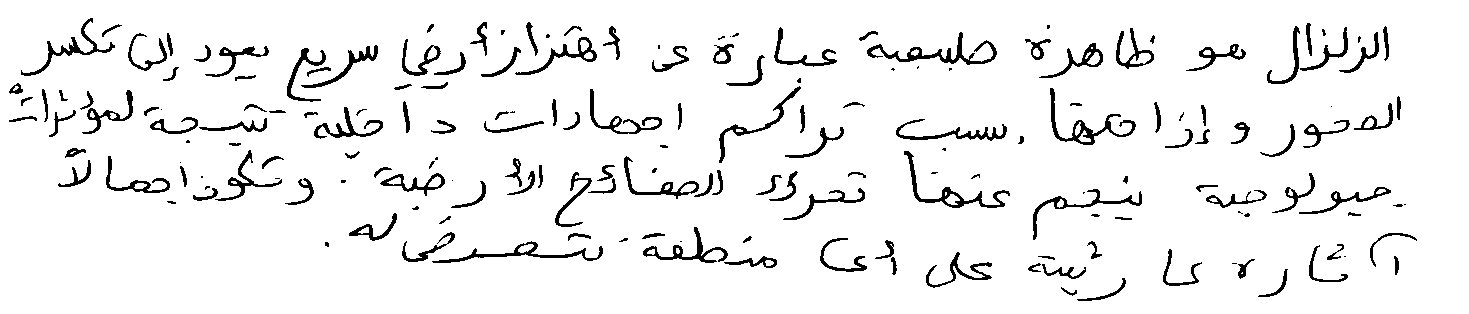 الزلزال هو ظاهرة طبيعية عبارة عن أهتزاز أرضي سريع يعود إلى تكسر
الصخور وإزاحتها بسبب تراكم اجهادات داخلية نتيجة لمؤثرات
جيولوجية ينجم عنها تحرك الصفائح الأرضية. وتكون اجمالاً
آثاره كارثية على أي منطقة تتعرض له.